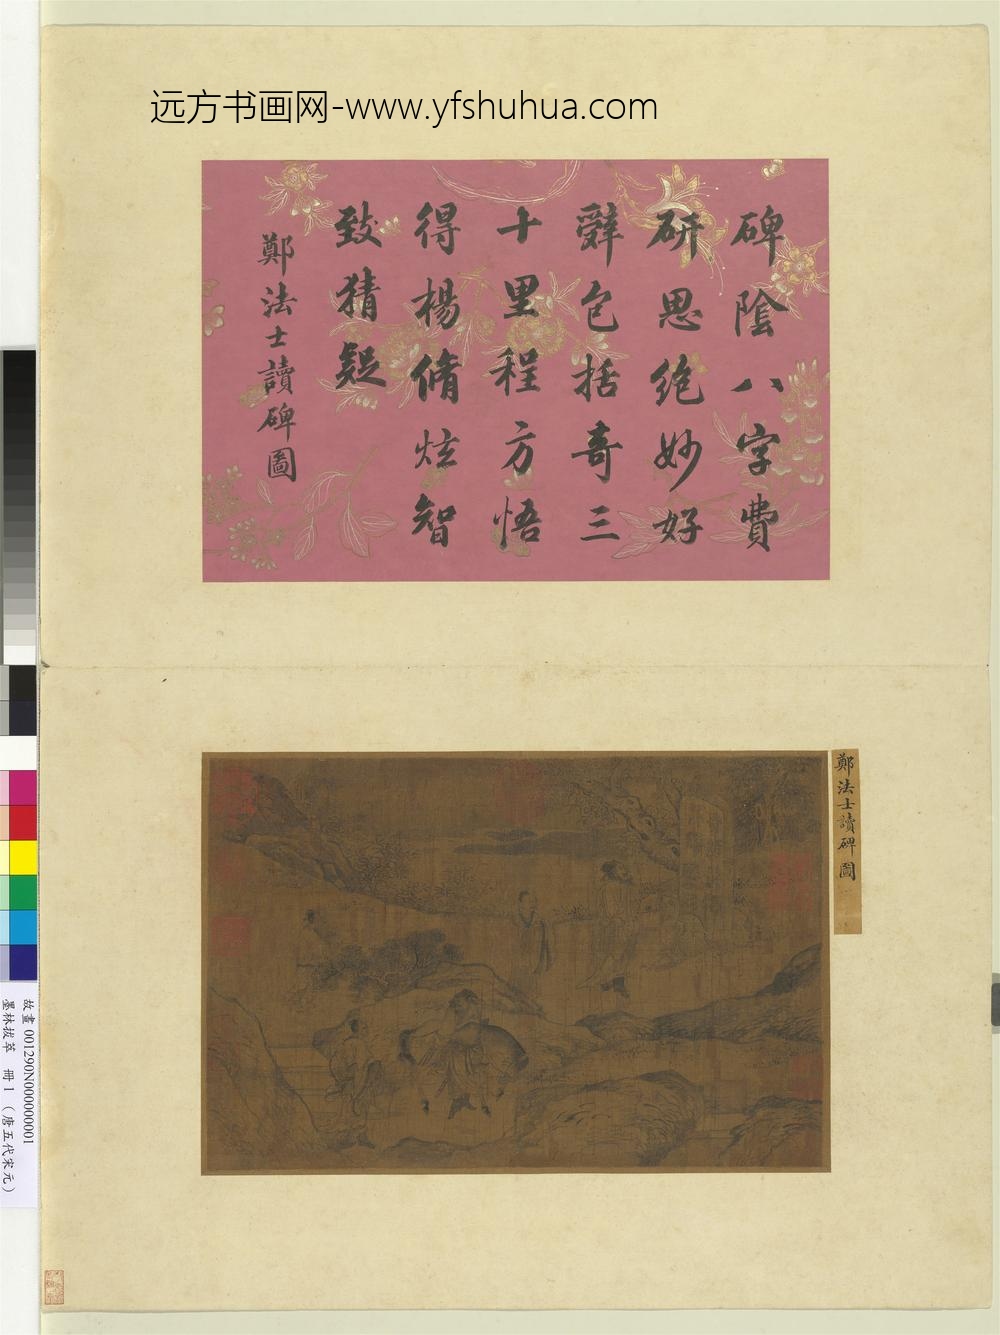 远方书画网-www.yfshuhua.com
碑陰八字費
研思絶妙好
辤包括奇三
十里程方悟
得楊脩炫智
致猜疑
鄭法士讀碑圖
鄭法士讀碑圖
故畫 001290N000000001
墨林拔萃 冊 1 （唐五代宋元）